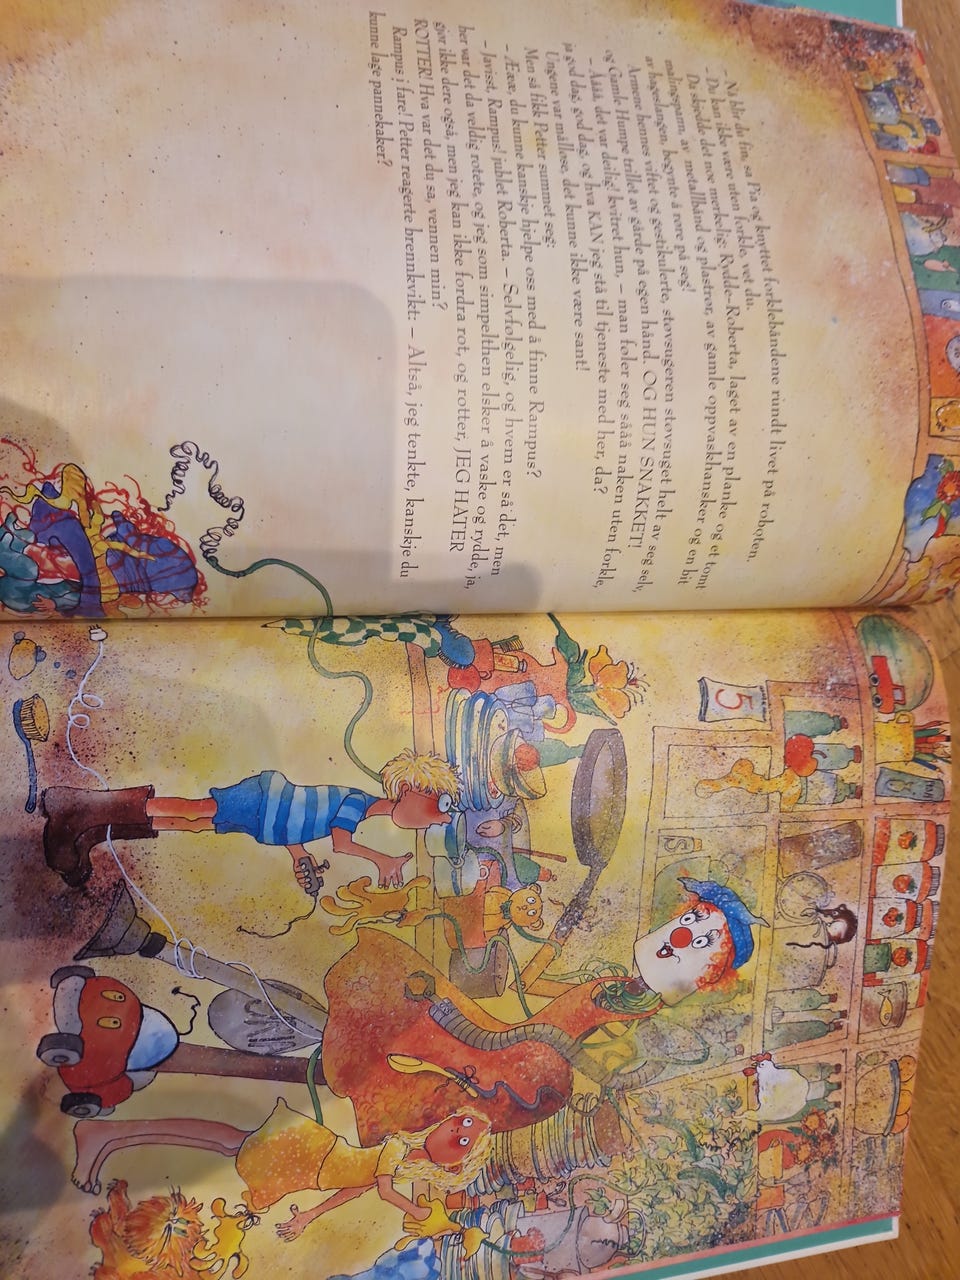 – Nå blir du fin, sa Pia og knyttet forklebåndene rundt livet på roboten.
– Du kan ikke være uten forkle, vet du.
Da skjedde det noe merkelig: Rydde-Roberta, laget av en planke og et tomt
malingspann, av metallbånd og plastrør, av gamle oppvaskhansker og en bit
av hageslangen, begynte å røre på seg!
Armene hennes viftet og gestikulerte, støvsugeren støvsuget helt av seg selv,
og Gamle Humpe trillet av gårde på egen hånd. OG HUN SNAKKET!
– Åååå, det var deilig! kvitret hun, – man føler seg sååå naken uten forkle,
ja god dag, god dag, og hva KAN jeg stå til tjeneste med her, da?
Ungene var målløse, det kunne ikke være sant!
Men så fikk Petter summet seg:
– Æææ, du kunne kanskje hjelpe oss med å finne Rampus?
– Javisst, Rampus! jublet Roberta. – Selvfølgelig, og hvem er så det, men
her var det da veldig rotete, og jeg som simpelthen elsker å vaske og rydde, ja,
gjør ikke dere også, men jeg kan ikke fordra rot, og rotter, JEG HATER
ROTTER! Hva var det du sa, vennen min?
Rampus i fare! Petter reagerte brennkvikt: – Altså, jeg tenkte, kanskje du
kunne lage pannekaker?
5